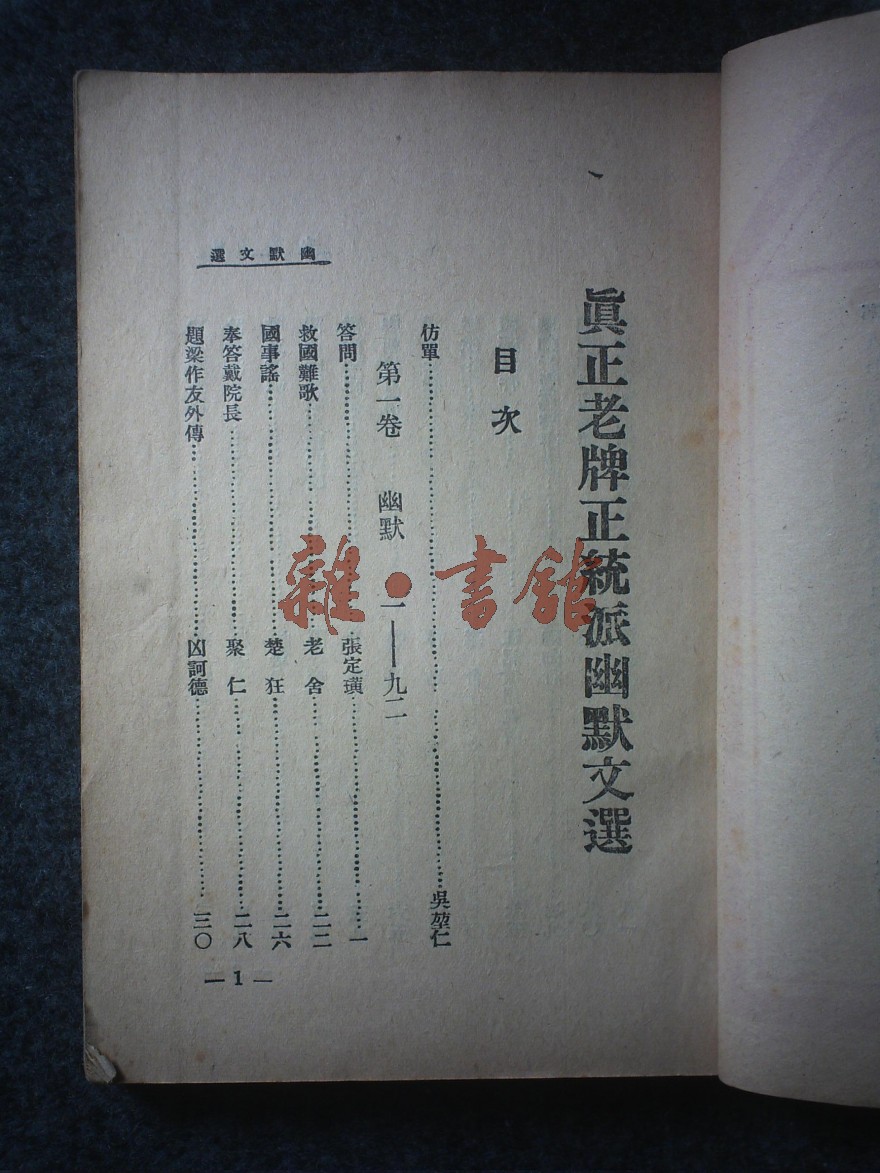 眞正老牌正統派幽默文選
目次
仿單……吳堃仁
第一卷 幽默 一——九二
答問……張定璜……一
救國難歌……老舍……二二
國事謠……楚狂……二六
奉答戴院長……聚仁……二八
題梁作友外傳……凶訶德……三〇
幽默文選
— 1 —
雜·書館